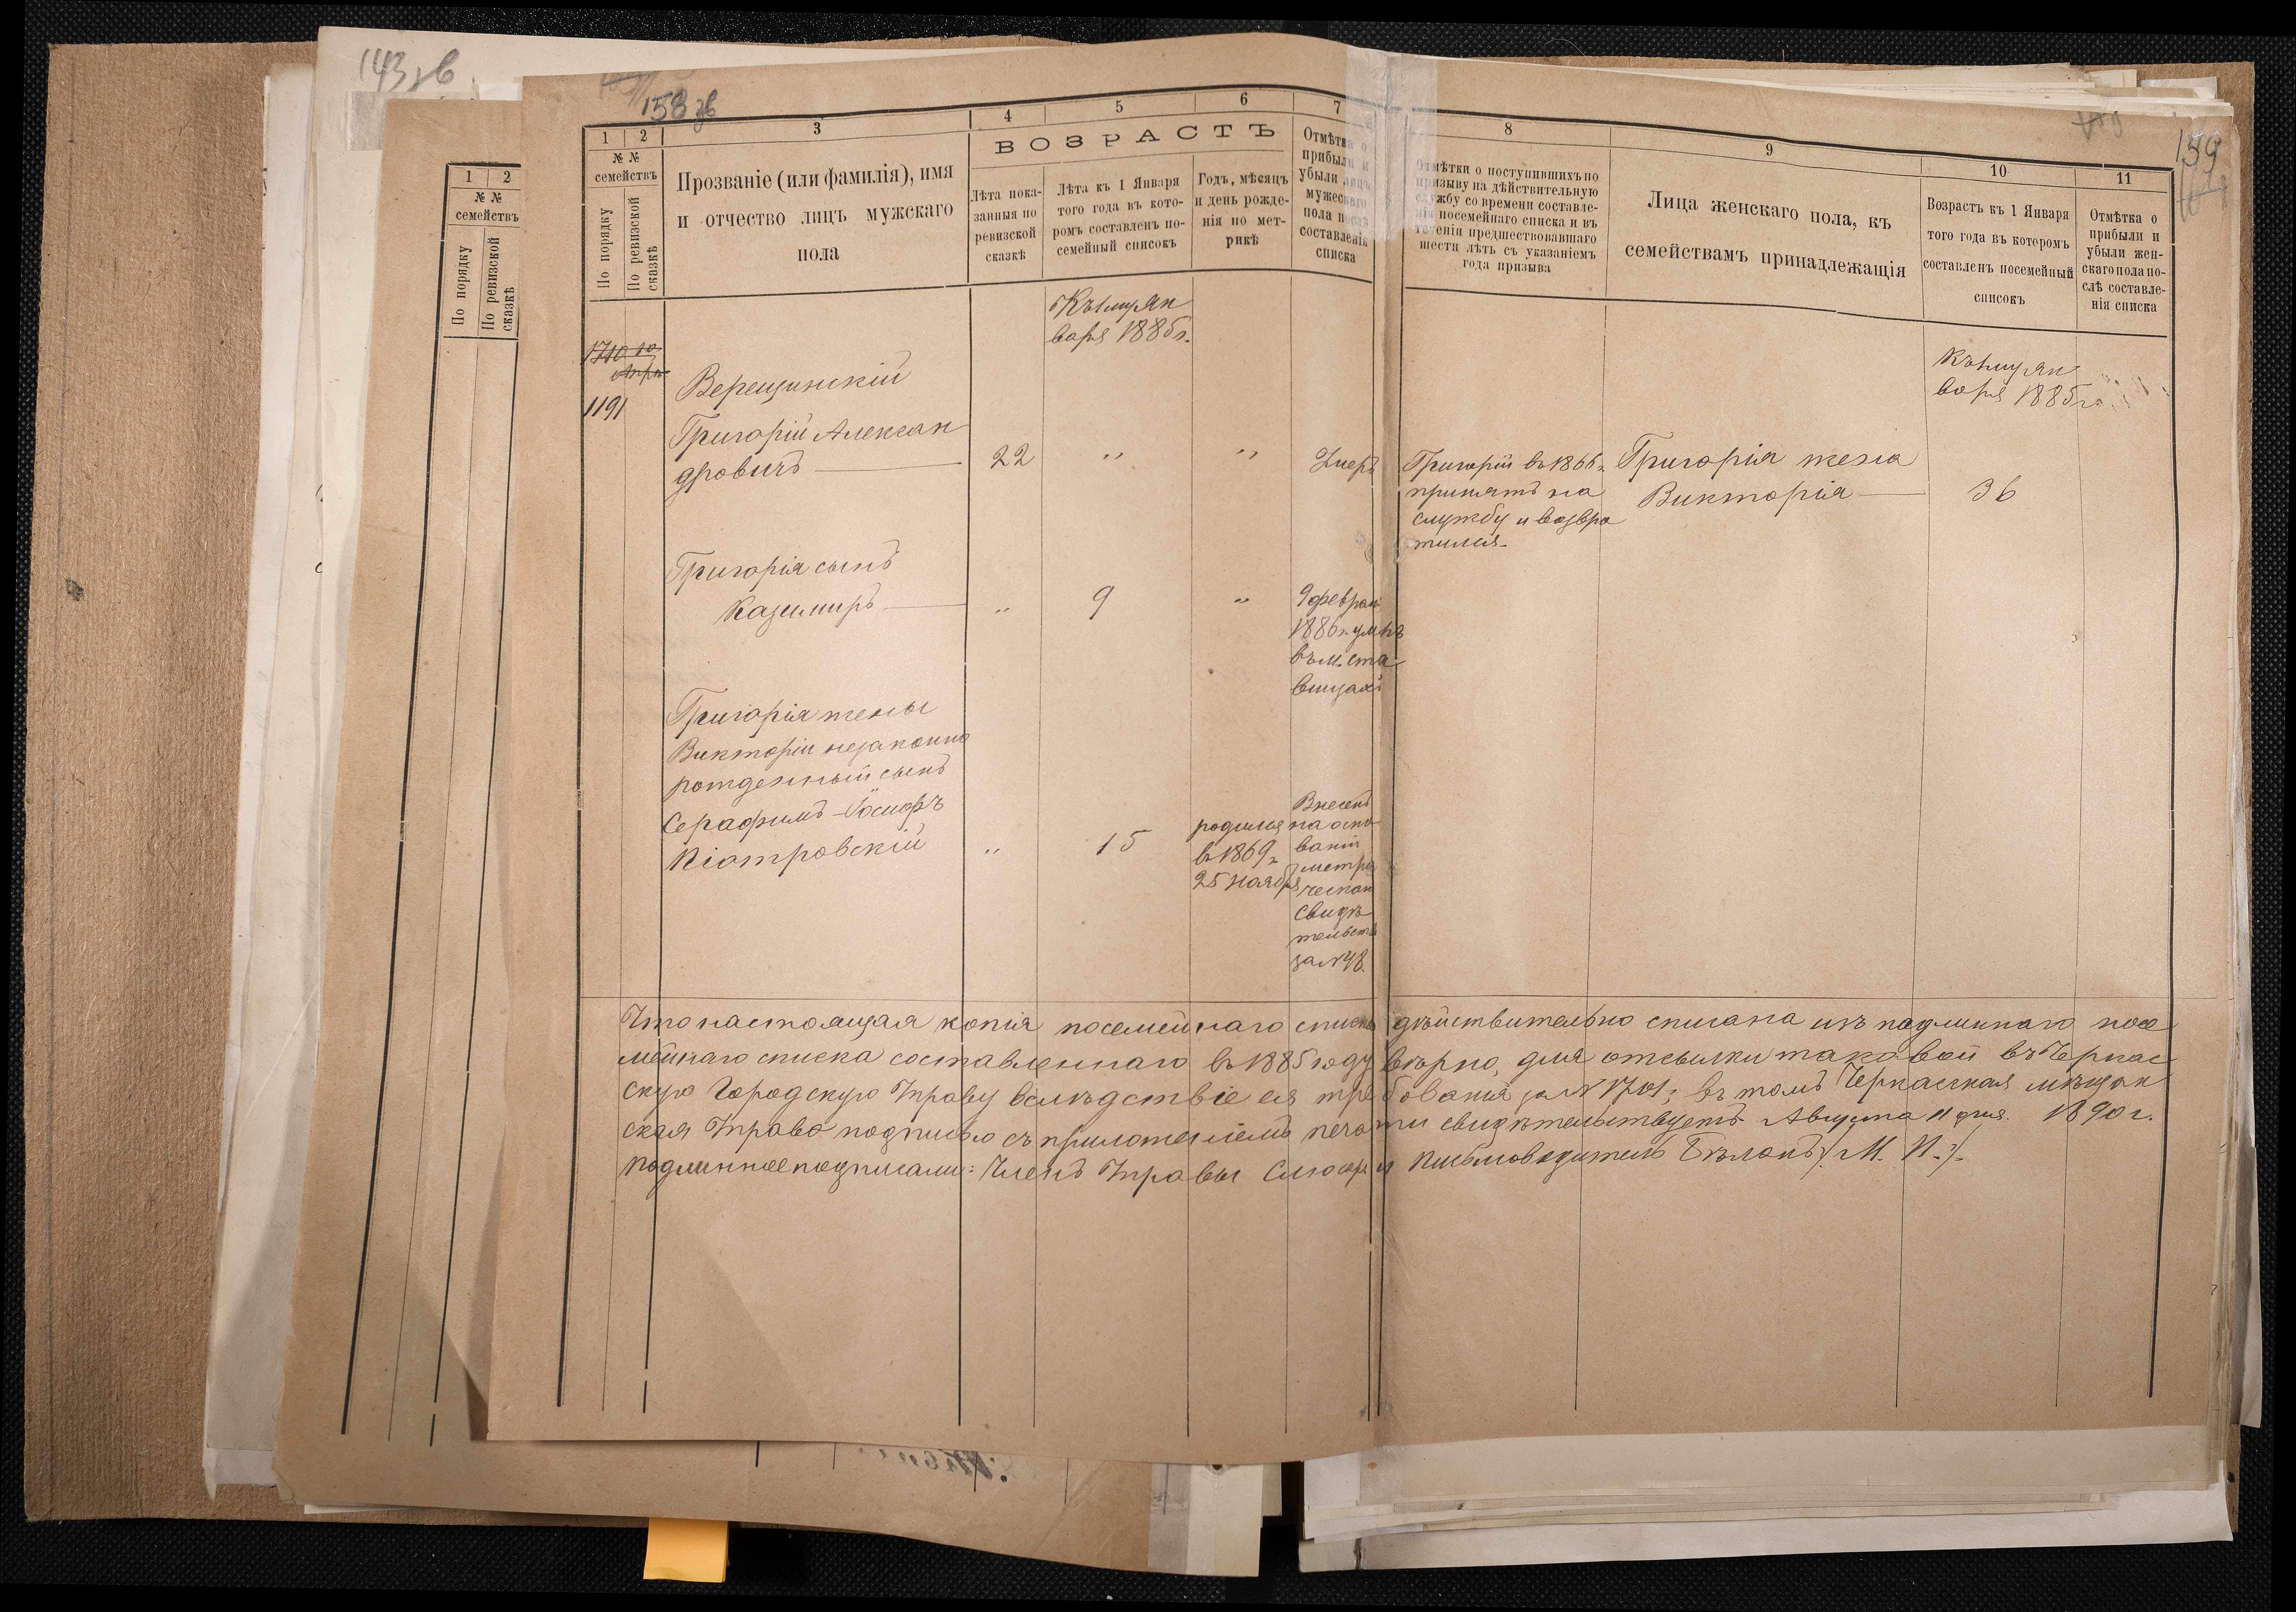 143 зв
158 зв
159
1
2
№ №
семействъ
По порядку
По ревизской
сказкѣ
1
2
3
4
5
6
7
8
9
10
11
№ №
семействъ
По порядку
По ревизской
сказкѣ
Прозваніе (или фамилія), имя
и отчество лицъ мужскаго
пола
ВОЗРАСТЪ
Лѣта пока-
занныя по
ревизской
сказкѣ
Лѣта къ 1 Января
того года въ кото-
ромъ составленъ по-
семейный списокъ
Годъ, мѣсяцъ
и день рожде-
нія по мет-
рикѣ
Отмѣтка о
прибыли и
убыли лицъ
мужескаго
пола послѣ
составленія
списка
Отмѣтки о поступившихъ по
призыву на дѣйствительную
службу со времени составле-
нія посемейнаго списка и въ
теченіи предшествовавшаго
шести лѣтъ съ указаніемъ
года призыва
Лица женскаго пола, къ
семействамъ принадлежащія
Возрастъ къ 1 Января
того года въ котеромъ
составленъ посемейный
списокъ
Отмѣтка о
прибыли и
убыли жен-
скаго пола по-
слѣ составле-
нія списка
Къ 1му Ян
варя 1885 г.
Къ 1му Ян
варя 1885 го
1191
Верещинскій
Григорій Алексан
дровичъ
22
"
"
Умеръ
Григорій въ 1866 г.
принятъ на
службу и возвра
тился.
Григорія жена
Викторія
36
Григорія сынъ
Казимиръ
"
9
"
9 феврал
1886 г. ум въ
въ м. Ста
вищахъ
Григорія жены
Викторіи незаконно
рожденный сынъ
Серафимъ-Іосифъ
Піотровскій
"
15
родился
въ 1869 г.
25 Ноября
Внесенъ
на осно
ваніи
метри
ческой
свидѣ
тельств
за № 48.
Что настоящая копія посемейнаго списка дѣйствительно списана изъ подлиннаго посе
мейнаго списка составленнаго въ 1885 году вѣрно, для отсылки таковой въ Черкас
скую Городскую Управу вслѣдствіе ея требованія за № 1701; въ томъ Черкаская мѣщан
ская Управа подписью съ приложеніемъ печати свидѣтельствуетъ Августа 11 дня. 1890 г.
Подлинное подписали: Членъ Управы и Письмоводитель /. М. П. ./.